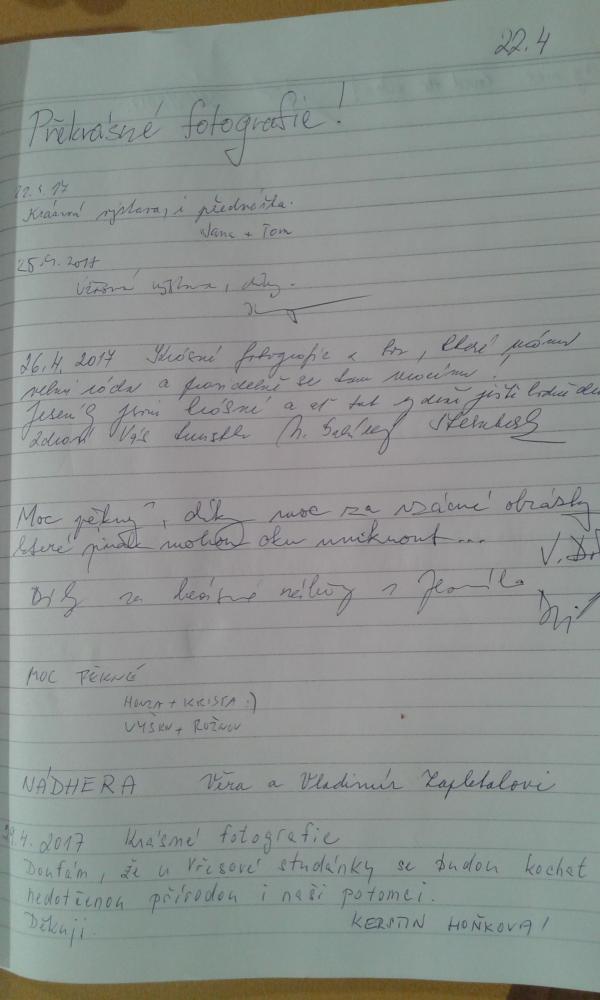 22.4
Překrásné fotografie!
22.4.17
Krásná výstava, i přednáška.
Jana + Tom
25.4.2017
Úžasná výstava, díky.
26.4.2017 Krásné fotografie a, které máme
velmi rádi a pravidelně se tam vracíme!
jsou krásné a ať tak ještě
zdraví Vás Sternberk
Moc pěkný, díky moc za vzácné obrázky
které jinak mohou oku uniknout...
V.
Díky za krásné z
MOC PĚKNÉ
HONZA + KRISTA :)
VYŠKOV + ROŽNOV
NÁDHERA Věra a Vladimír Zapletalovi
29.4.2017 Krásné fotografie
Doufám, že u Vřesové studánky se budou kochat
nedotčenou přírodou i naši potomci.
Děkuji. KERSTIN HOŇKOVA!